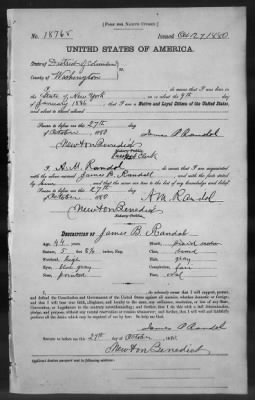 [FORM FOR NATIVE CITIZEN.]
No. 18768 Issued Oct 27 1880
UNITED STATES OF AMERICA.
State of District of Columbia
County of Washington
State of New York on the 9th day
of January 1836 that I am a Native and Loyal Citizen of the United States,
and about to travel abroad
Sworn to before me this 27th day
of October 1880 James B Randol
Newton Benedict
Notary Public
I, A. M. Randol do swear that I am acquainted
with the above named James B. Randoll and with the facts stated
by him and that the same are true to the best of my knowledge and belief
Sworn to before me this 27th day
of October 1880 A M Randol
Newton Benedict
Notary Public
DESCRIPTION OF James B. Randol
Age: 44 years
Stature: 5 feet
Forehead: high
Eyes: blue gray
Nose: pointed
Mouth:
Chin: round
Hair: gray
Complexion: fair
Face: oval
I, do solemnly swear that I will support, protect, and
defend the Constitution and Government of the United States against all enemies, whether domestic or foreign;
and that I will bear true faith, allegiance, and loyalty to the same, any ordinance, resolution, or law of any State,
Convention, or Legislature to the contrary notwithstanding; and further, that I do this with a full determination,
pledge, and purpose, without any mental reservation or evasion whatsoever; and further, that I will well and faithfully
perform all the duties which may be required of me by law. So help me God.
James B Randol
Sworn to before me this
27th day of October 1880
Newton Benedict
Applicant desires passport sent to following address: